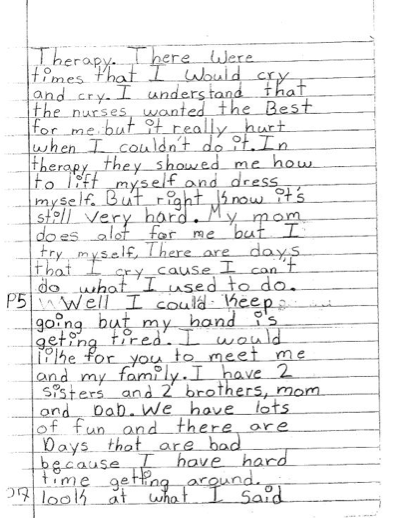 Therapy. There were
times that I would cry
and cry. I understand that
the nurses wanted the Best
for me but it really hurt
when I couldn't do it. In
therapy they showed me how
to lift myself and dress
myself. But right know it's
still very hard. My mom
does alot for me but I
try myself. There are days
that I cry cause I can't
do what I used to do.
P5 Well I could keep
going but my hand is
geting tired. I would
like for you to meet me
and my family. I have 2
sisters and 2 brothers, mom
and DaD. We have lots
of fun and there are
Days that are bad
because I have hard
time getting around.
look at what I said